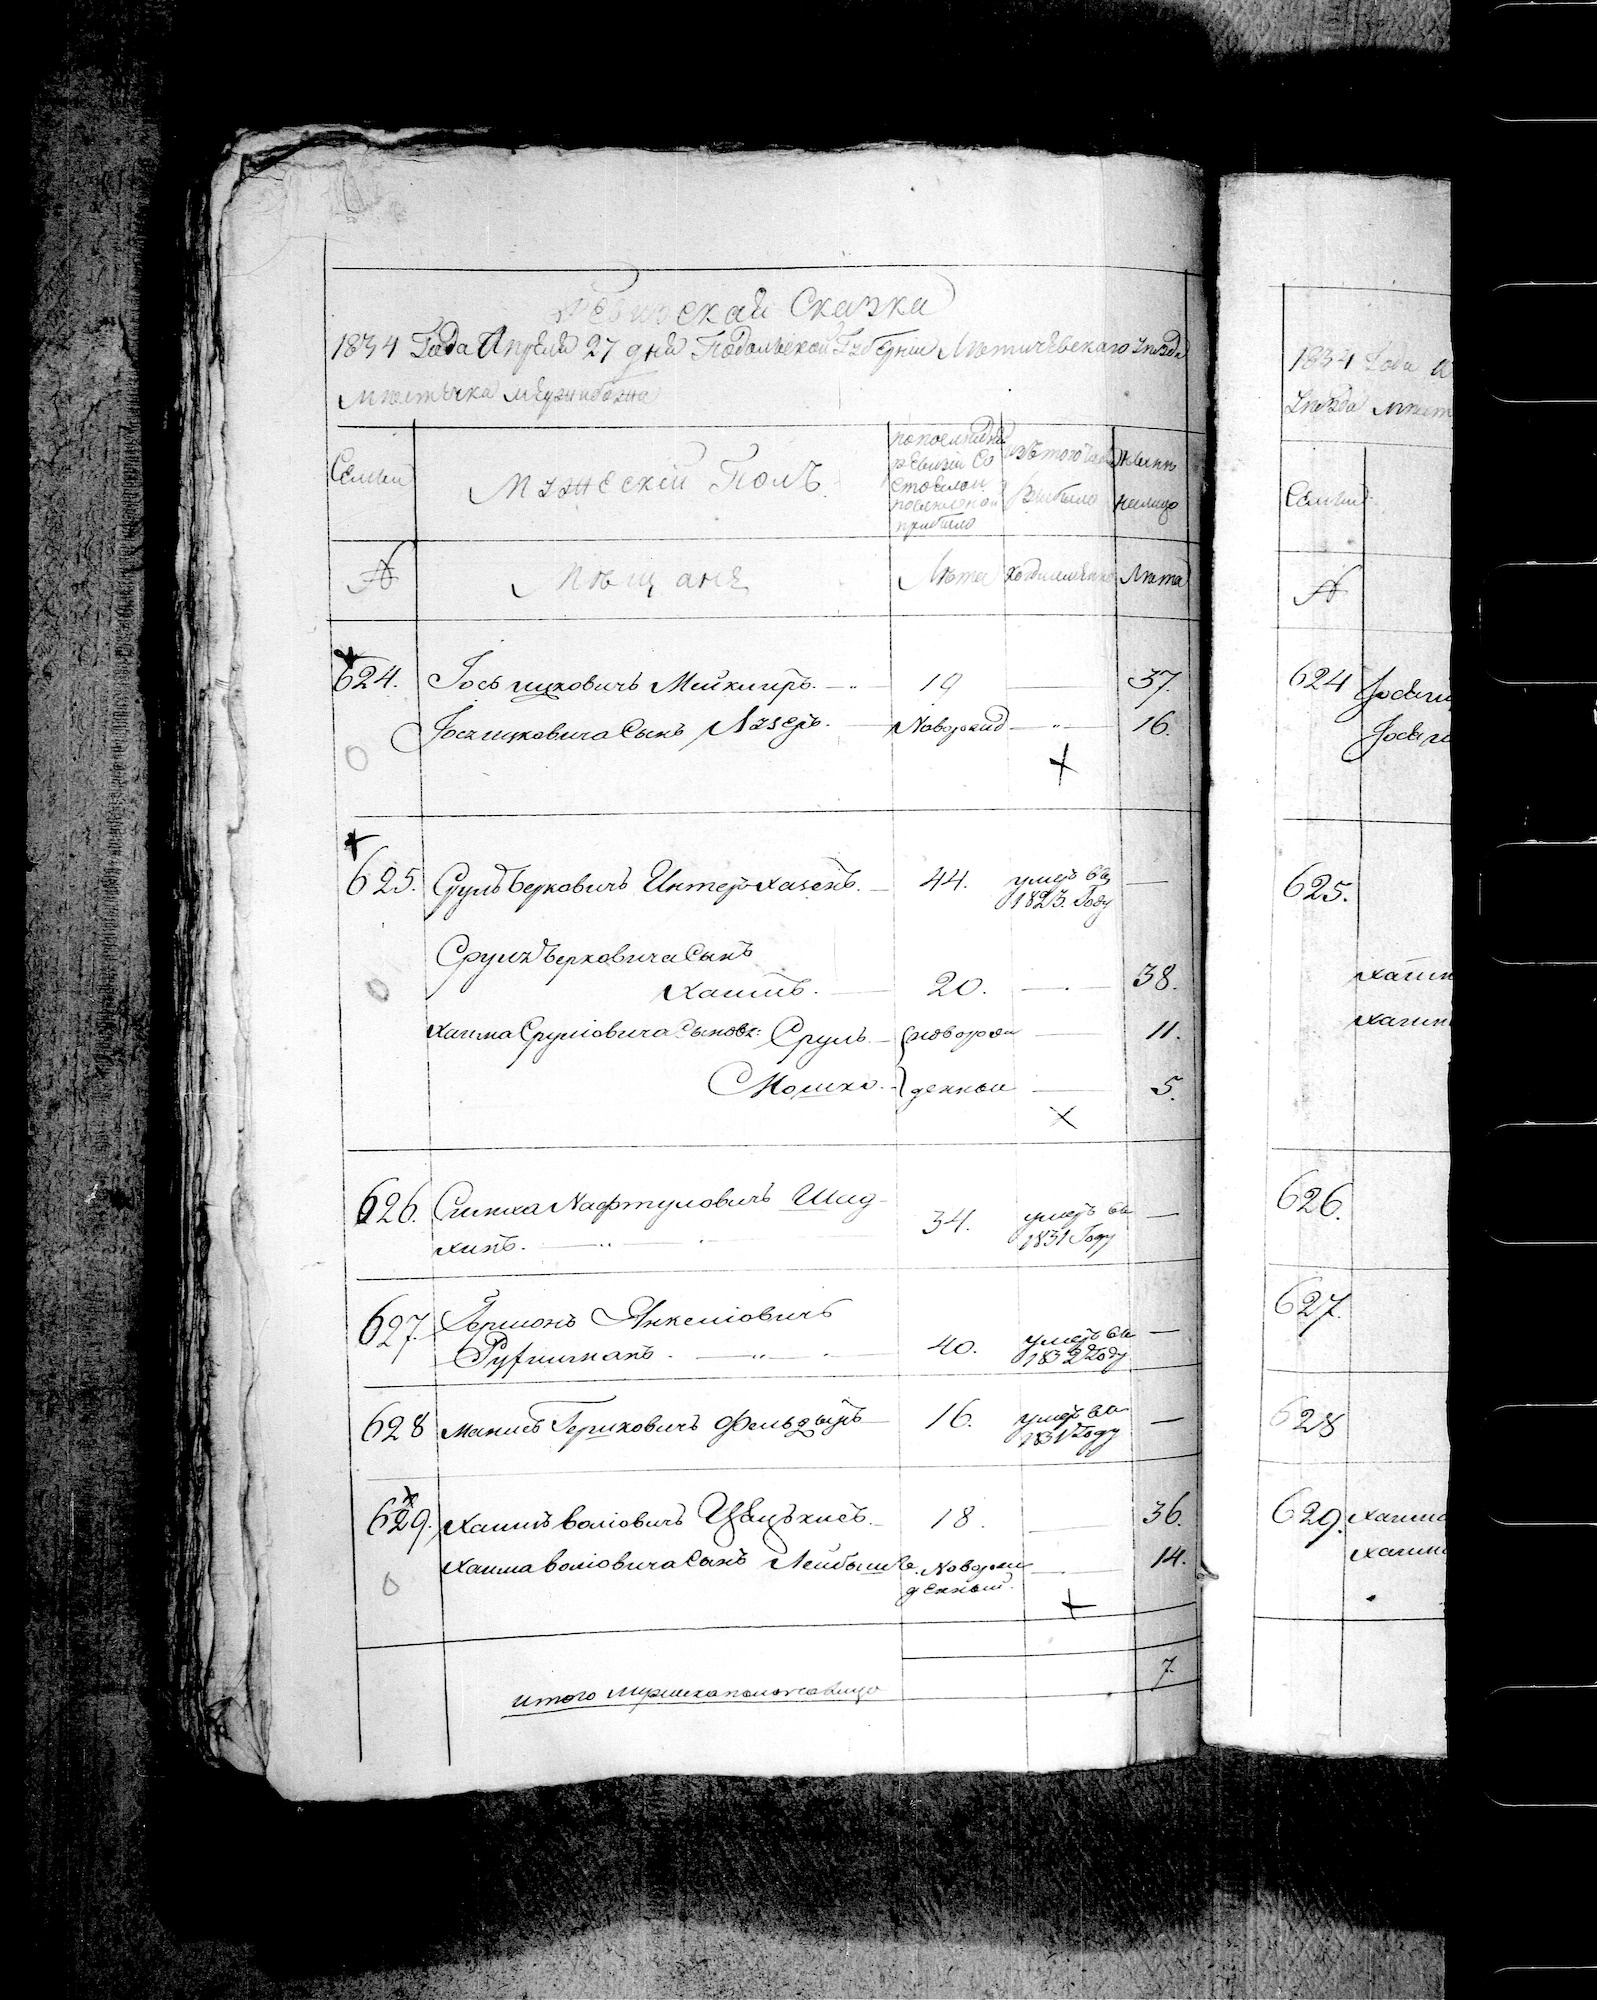 Ревизская Сказка
1834 Года Апреля 27 дня Подольской Губернии Летичевскаго уезда
местечка межибожа
Семьи
Мужескій Полъ
по последней
ревизіи Со
стояло и
после оной
прибыло
изъ того числа
выбыло
Ныне
налицо
№
Мещане
Лета
Когда именно
Лета
624. Іось ицковичъ Мейклиръ. 19 37.
Іося ицковича Сынъ Лузеръ. Новорожд 16.
625. Сруль Берковичъ Интерхазенъ. 44. умеръ въ
1823. Году
Сруля Берковича Сынъ
Хаимъ. 20. 38.
Хаима Сруліовича Сыновья: Сруль новорож 11.
Мошко. денныи 5.
626. Симха Нафтуловичъ Шад-
хинъ. 34. умеръ въ
1831 Году
627. Гершонъ Янкеліовичъ
Руфишманъ. 40. умеръ въ
1832 Году
628 Манись Гершковичъ Фельдзыръ 16. умеръ въ
1831 Году
629. Хаимъ воліовичъ 18. 36.
Хаима воліовича Сынъ Лейбыше. Новорож 14.
денный.
итого мужеска пола налицо 7.
1834 Года А
Уезда мест
Семьи
№
624 Іося иц
Іося иц
625.
Хаим
Хаим
626.
627.
628
629. Хаима
Хаима